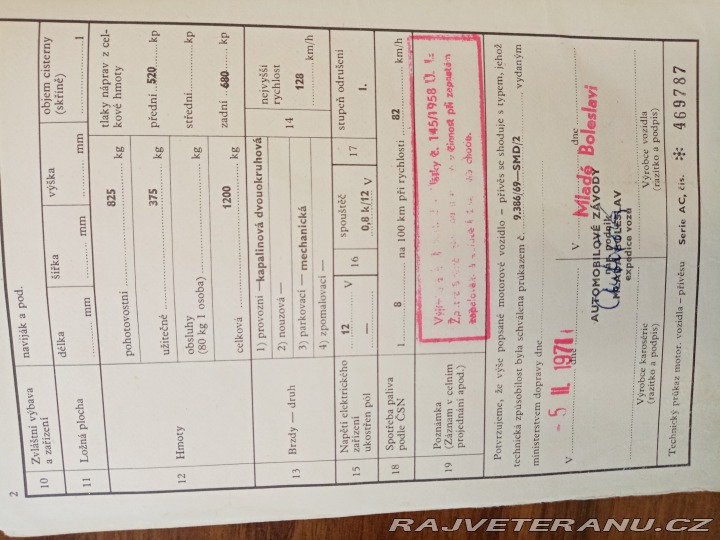 2
10
Zvláštní výbava
a zařízení
naviják a pod.
objem cisterny
(skříně) l
11
Ložná plocha
délka mm
šířka mm
výška mm
12
Hmoty
pohotovostní 825 kg
užitečné 375 kg
obsluhy
(80 kg 1 osoba) kg
celková 1200 kg
tlaky náprav z cel-
kové hmoty
přední 520 kp
střední kp
zadní 680 kp
13
Brzdy — druh
1) provozní —kapalinová dvouokruhová
2) nouzová —
3) parkovací — mechanická
4) zpomalovací —
14
nejvyšší
rychlost
128 km/h
15
Napětí elektrického
zařízení
ukostřen pól
12 V
—
16
spouštěč
0,8 k/12 V
17
stupeň odrušení
I.
18
Spotřeba paliva
podle ČSN
l 8 na 100 km při rychlosti 82 km/h
19
Poznámka
(Záznam v celním
projednání apod.)
145/1958 Ú. l.
Potvrzujeme, že výše popsané motorové vozidlo – přívěs se shoduje s typem, jehož
technická způsobilost byla schválena průkazem č. 9.386/69—SMD/2 vydaným
ministerstvem dopravy dne
V dne
- 5 II. 1971
V dne
Mladé Boleslavi
AUTOMOBILOVÉ ZÁVODY
nár. podnik
MLADÁ BOLESLAV
expedice vozů
Výrobce karosérie
(razítko a podpis)
Výrobce vozidla
(razítko a podpis)
Technický průkaz motor. vozidla – přívěsu Serie AC, čís. 469787
RAJVETERANU.CZ